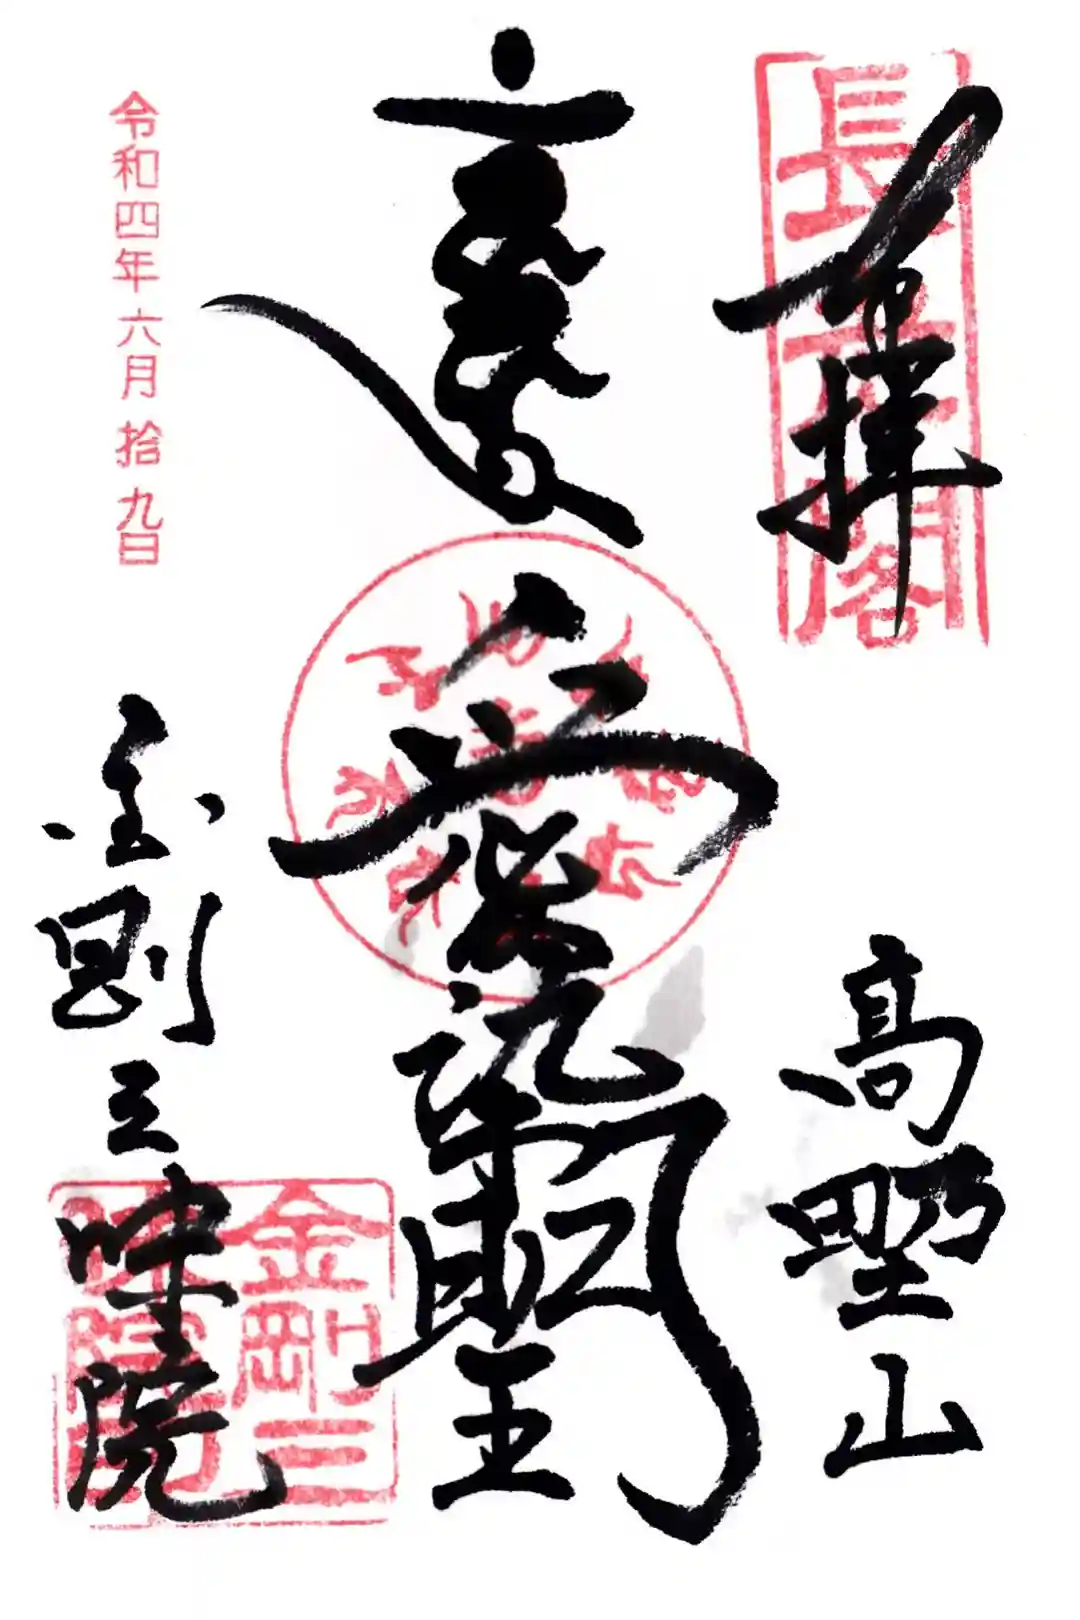 奉拝
長寿閣
高野山
愛染明王
金剛三昧院
金剛三
昧院
令和四年六月拾九日